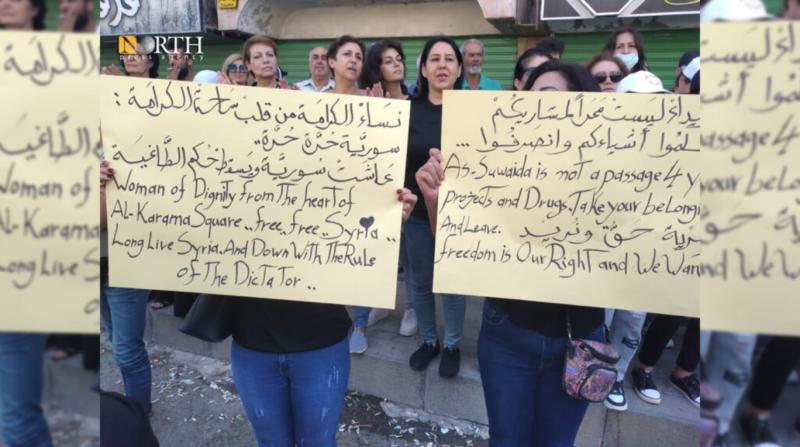 NORTH
press agency
نساء الكرامة من قلب ساحة الكرامة:
سورية حُرَّة حُرَّة..
عاشت سورية ويسقط حكم الطاغية
Woman of Dignity from The heart of
AL-Karama Square.. free.. free.. Syria..
Long Live Syria. And Down With The Rule
of The DicTaTor..
يداء ليست ممراً لمشاريعكم
أشياءكم وانصرفوا...
As-Suwaida is not a passage 4 y
projects and Drugs. Take your belongi
And Leave. حرية حق ونريد
freedom is Our Right and We Wan
الكرامة
الطاغية
Woman of
AL-Karama
Long Live S
داء ليست
أشياءكم
passage 4
your belon
رية حق
and We W